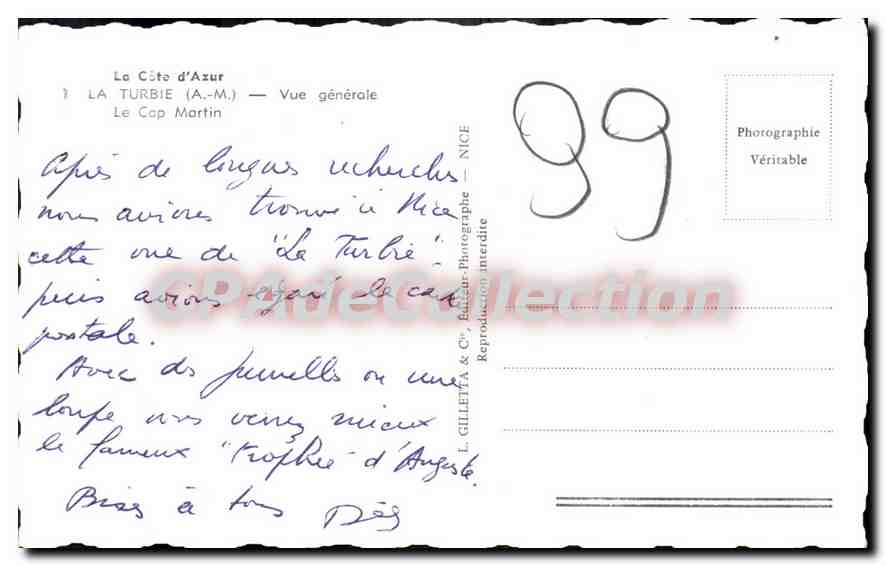 La Côte d'Azur
LA TURBIE (A.-M.) — Vue générale
Le Cap Martin
Après de longues recherches
nous avions trouvé à Nice
cette vue de "La Turbie".
puis avions égaré la carte
postale.
Avec des jumelles ou une
loupe vous verrez mieux
le fameux "trophée" d'Auguste.
Bises à tous
L. GILLETTA & Cie, Éditeur-Photographe — NICE
Reproduction interdite
99
Photographie
Véritable
CPAdeCollection